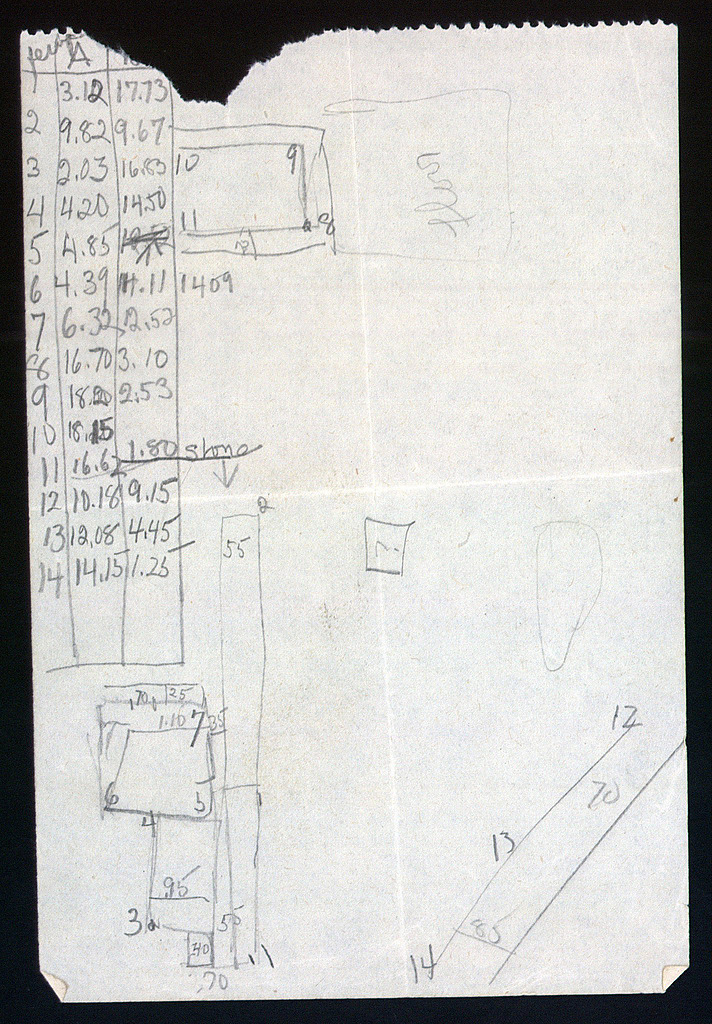 A
1 3.12 17.73
2 9.82 9.67
3 2.03 16.83 10 9
4 4.20 14.50 11 8
5 4.85
6 4.39 14.11 1409
7 6.32 12.52
8 16.70 3.10
9 18.20 2.53
10 18.15
11 16.62 1.80 stone
12 10.18 9.15 2
13 12.08 4.45 55 ?
14 14.15 1.25
.70 25
1.10 7 35 12
6 5 70
4
13
95
3 55 85
40 14
.70 1